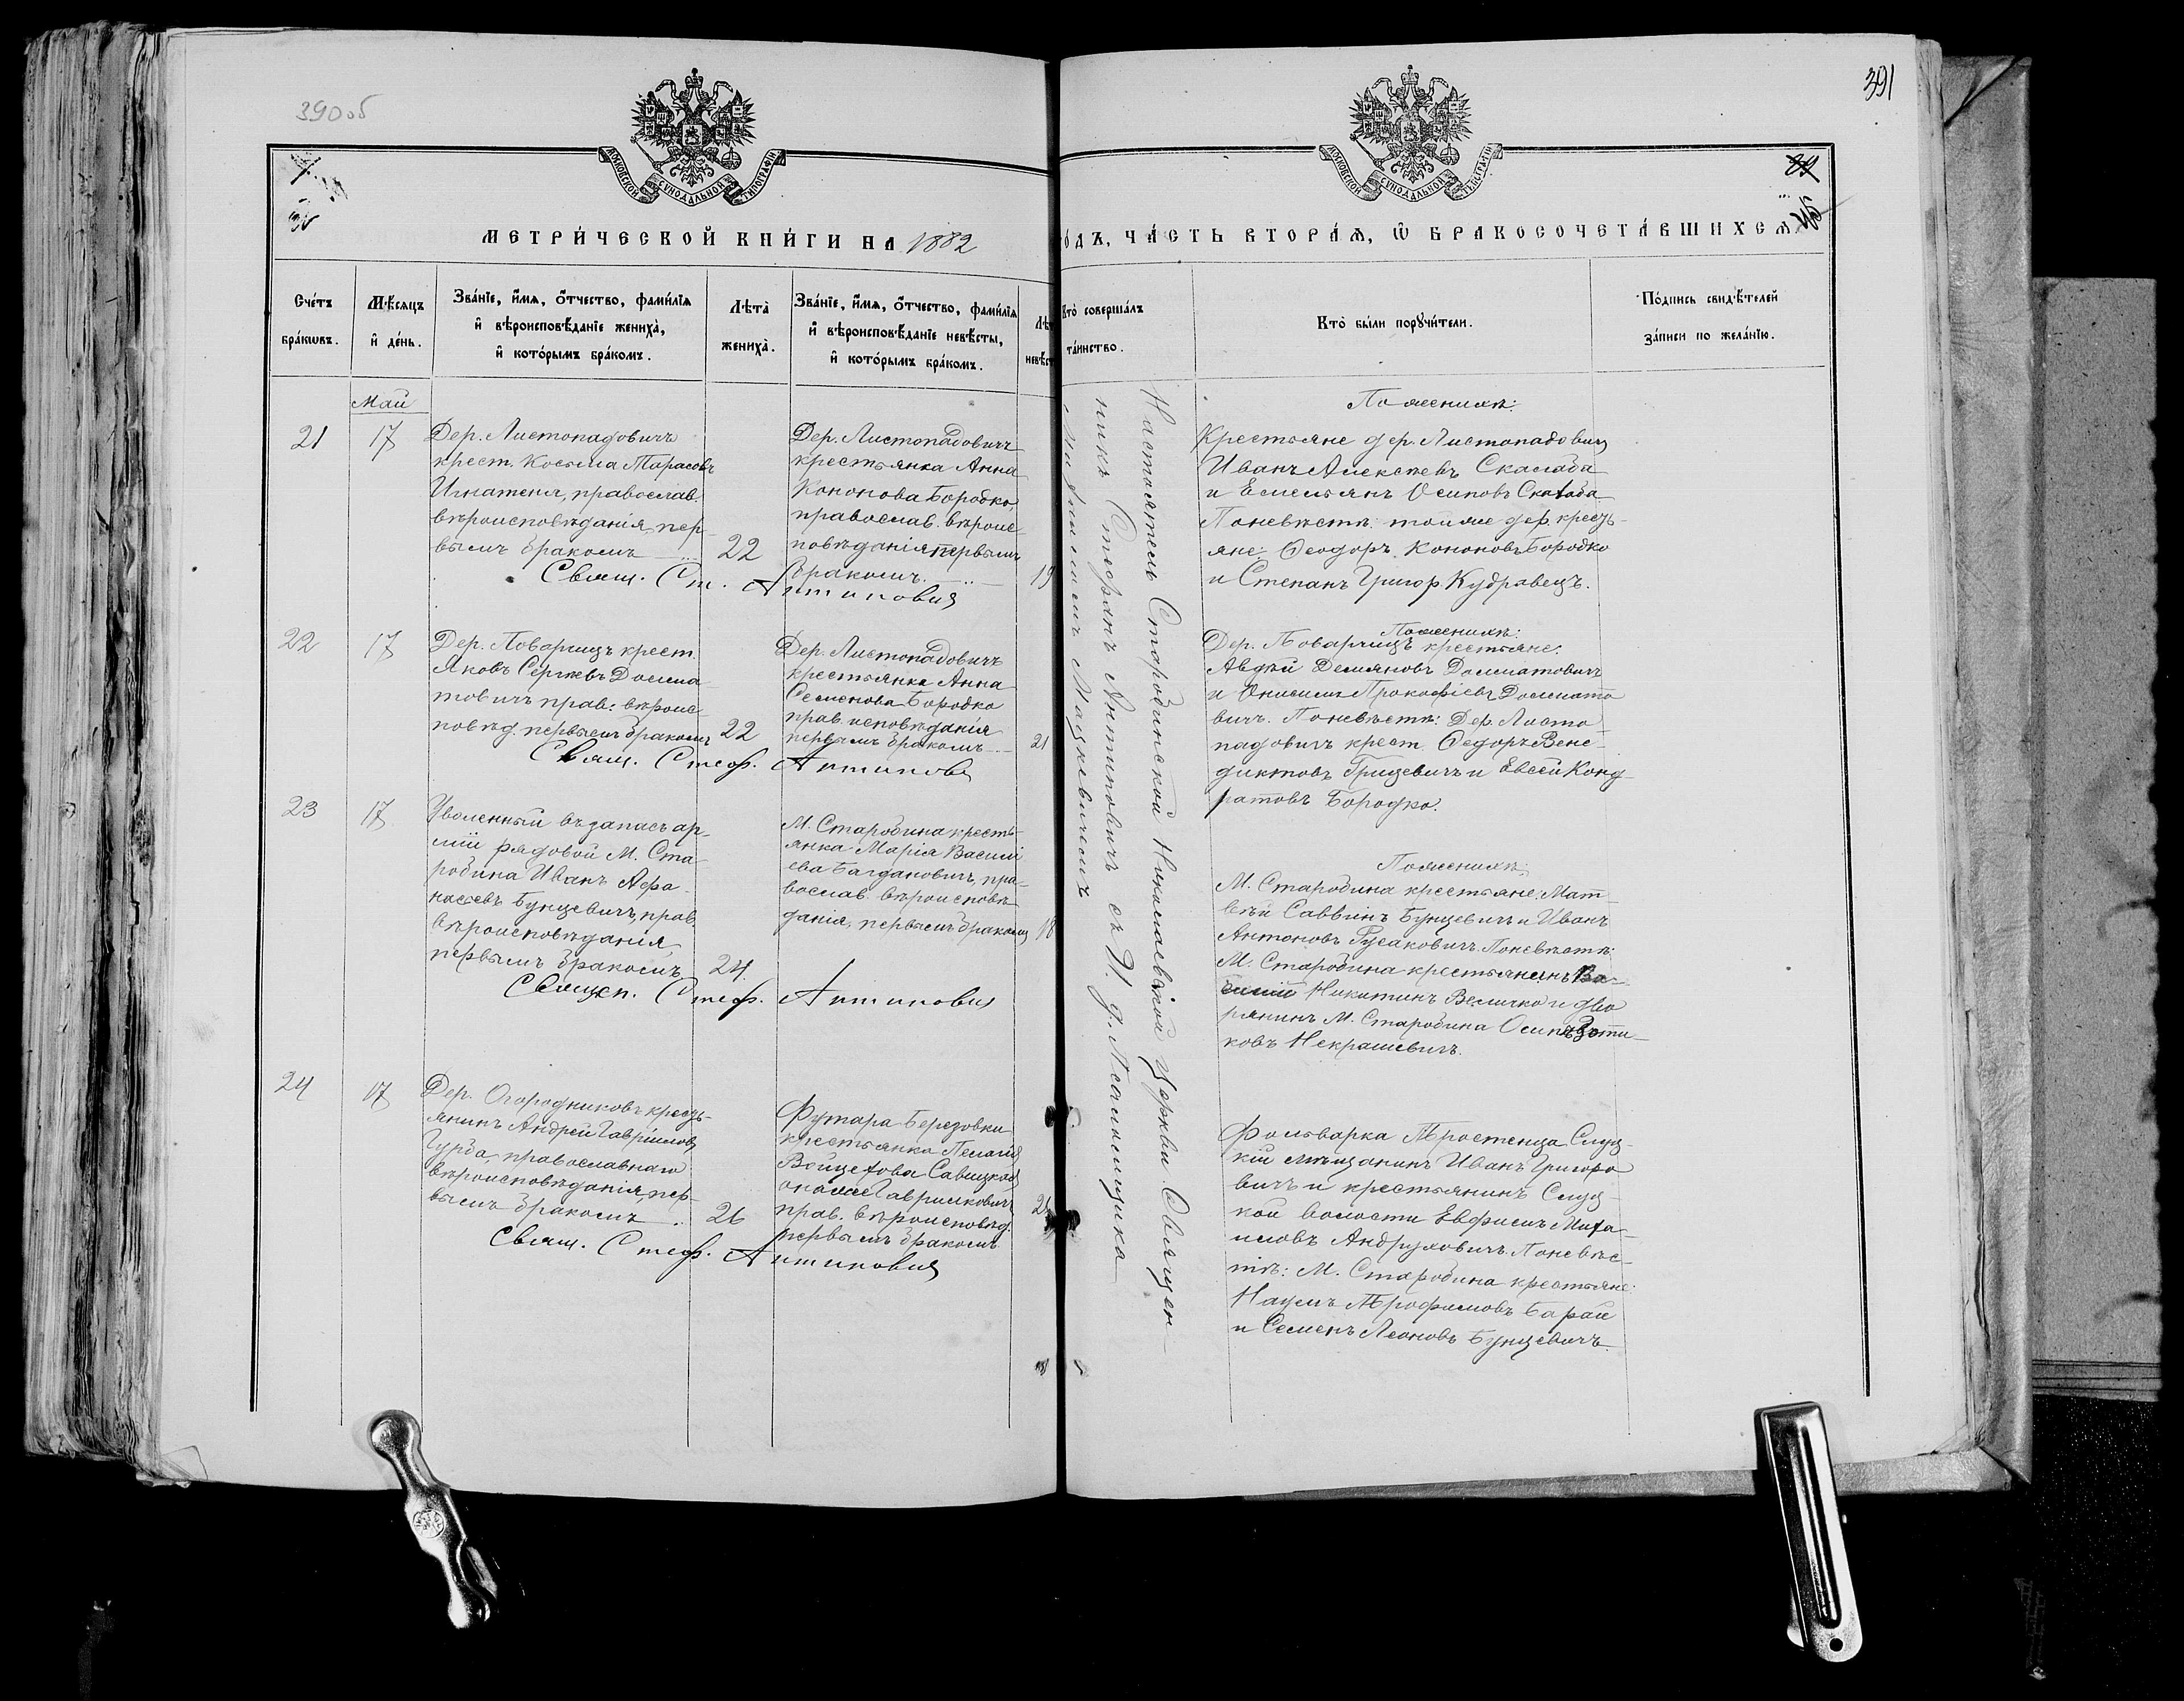 390об
391
МОСКОВСКОЙ СУНОДАЛЬНОЙ ТИПОГРАФІИ
МОСКОВСКОЙ СУНОДАЛЬНОЙ ТИПОГРАФІИ
МЕТРИ́ЧЕСКОЙ КНИ́ГИ НА 1882
О́ДЪ, ЧА́СТЬ ВТОРА́Ѧ, Ѽ БРАКОСОЧЕТА́ВШИХСѦ
Сче́тъ
бра́кѡвъ.
Мѣ́сяцъ
и҆ де́нь.
Зва́нїе, и҆́мѧ, ѻ҆́тчество, фами́лїѧ
и҆ вѣроисповѣ́данїе жениха̀,
и҆ кото́рымъ бра́комъ.
Лѣта̀
жениха̀.
Зва́нїе, и҆́мѧ, ѻ҆́тчество, фами́лїѧ
и҆ вѣроисповѣ́данїе невѣ́сты,
и҆ кото́рымъ бра́комъ.
Лѣт
невѣст
Кто̀ соверша́лъ
та́инство.
Кто̀ бы́ли порꙋчи́тели.
По́дпись свидѣ́телей
за́писи по жела́нїю.
Май
21
17
Дер. Листопадовичъ
крест. Косьма Тарасовъ
Игнатеня, православ.
вѣроисповѣданія, пер-
вымъ бракомъ
22
Дер. Листопадовичъ
крестьянка Анна
Кононова Бородко,
православ. вѣроис
повѣданія первымъ
бракомъ.
19
Свящ. Ст. Антиповичъ
По женихѣ:
Крестьяне дер. Листопадович
Иванъ Алексѣевъ Скалаба
и Емельянъ Осиповъ Скалаба
По невѣстѣ: той же дер. кресть-
яне: Ѳеодоръ Кононовъ Бородко
и Степанъ Григор Кудравецъ.
22
17
Дер. Поварчицъ крест.
Яковъ Сергѣевъ Долма
товичъ прав: вѣроис-
повѣд. первымъ бракомъ
22
Дер. Листопадовичъ
крестьянка Анна
Семенова Бородко
прав. исповѣданія
первымъ бракомъ
21
Свящ. Стеф. Антипови
По женихѣ:
Дер. Поварчицъ крестьяне:
Авдѣй Демяновъ Долматовичъ
и Онисимъ Прокофіевъ Долмато
вичъ. По невѣстѣ: Дер. Листо
падовичъ крест. Ѳедоръ Вене-
диктовъ Грицевичъ и Евсей Конд-
ратовъ Бородко.
23
17
Уволенный въ запасъ ар-
міи рядовой М. Ста-
робина Иванъ Афа-
насьевъ Бунцевичъ, прав.
вѣроисповѣданія
первымъ бракомъ
24
М. Старобина кресть-
янка Марія Васили
ева Багдановичъ, пра-
вослав. вѣроисповѣ
данія, первымъ бракомъ
18
Священ. Стеф. Антипович
По женихѣ:
М. Старобина крестьяне: Мат-
вѣй Саввинъ Бунцевичъ и Иванъ
Антоновъ Русаковичъ. По невѣстѣ:
М. Старобина крестьянинъ Ва-
силій Никитинъ Величко и дво
рянинъ М. Старобина Осипъ
ковъ Некрашевичъ.
24
17
Дер. Огородниковъ кресть-
янинъ Андрей Гавріиловъ
Гурба, православнаго
вѣроисповѣданія, пер-
вымъ бракомъ
26
Футара Березовки
крестьянка Пелагія
Войцехова Савицкая
она же Гаврилковичъ
прав. вѣроисповѣд.
первымъ бракомъ
Свящ. Стеф. Антипович
Фольварка Тростенца Слуц-
кій мѣщанинъ Иванъ Григоро
вичъ и крестьянинъ Слуц-
кой волости Евфимъ Миха-
иловъ Андруховичъ. По невѣс-
тѣ: М. Старобина крестьяне:
Наумъ Трофимовъ Барай
и Семенъ Леоновъ Бунцевичъ.
Настоятель Старобинской Николаевской церкви Священ-
никъ Стефанъ Антиповичъ съ И. д. Псаломщика
Мацкевичемъ